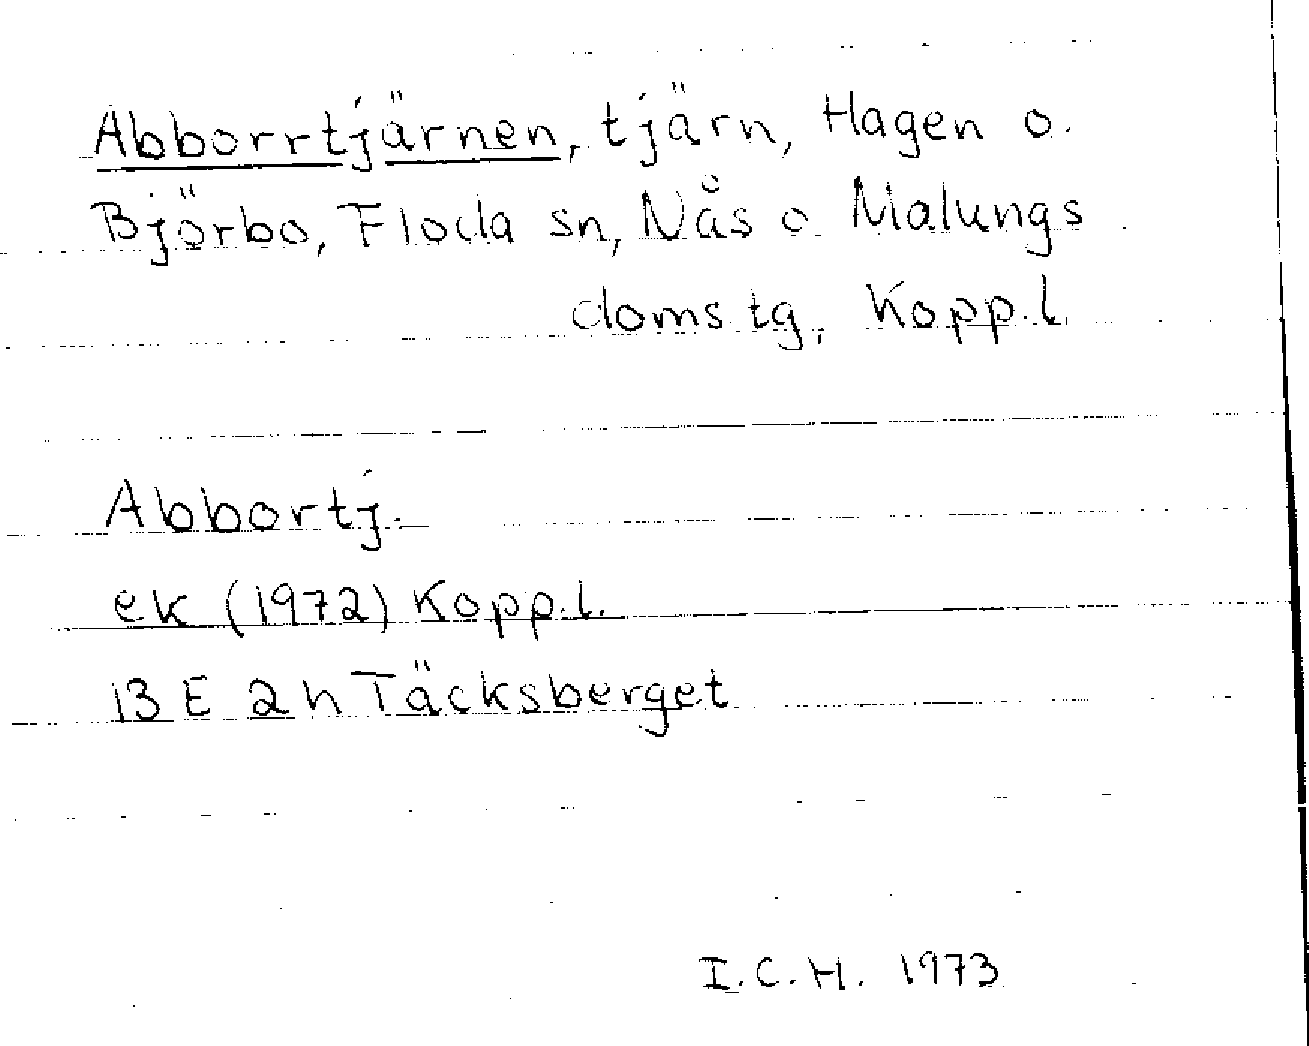 Abborrtjärnen, tjärn, Hagen o.
Björbo, Floda sn, Nås o. Malungs
doms.tg, Kopp.l.
Abbortj.
ek (1972) Kopp.l.
13 E 2h Täcksberget
I.C.H. 1973